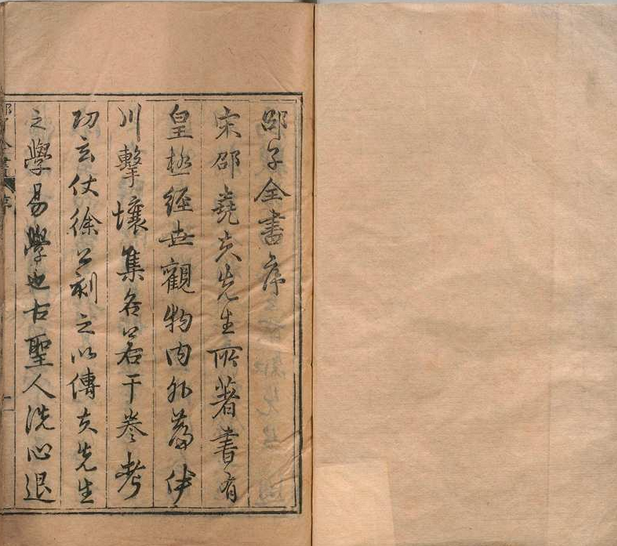 邵子全書序
宋邵堯夫先生所著書有
皇極經世觀物內外篇伊
川擊壤集各若干卷考
功玄仗徐公刻之以傳夫先生
之學易學也古聖人洗心退